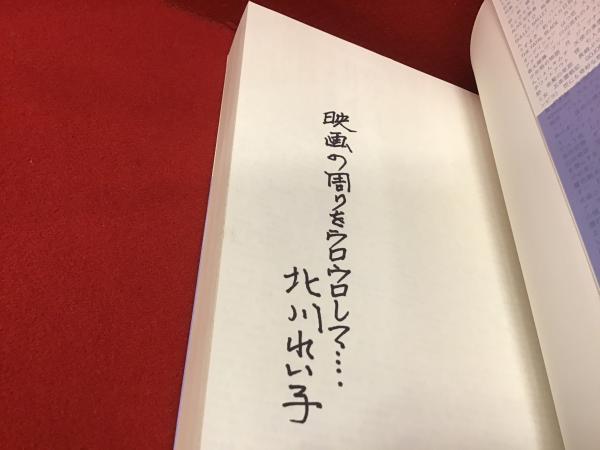 映画の周りをウロウロして‥‥.
北川れい子